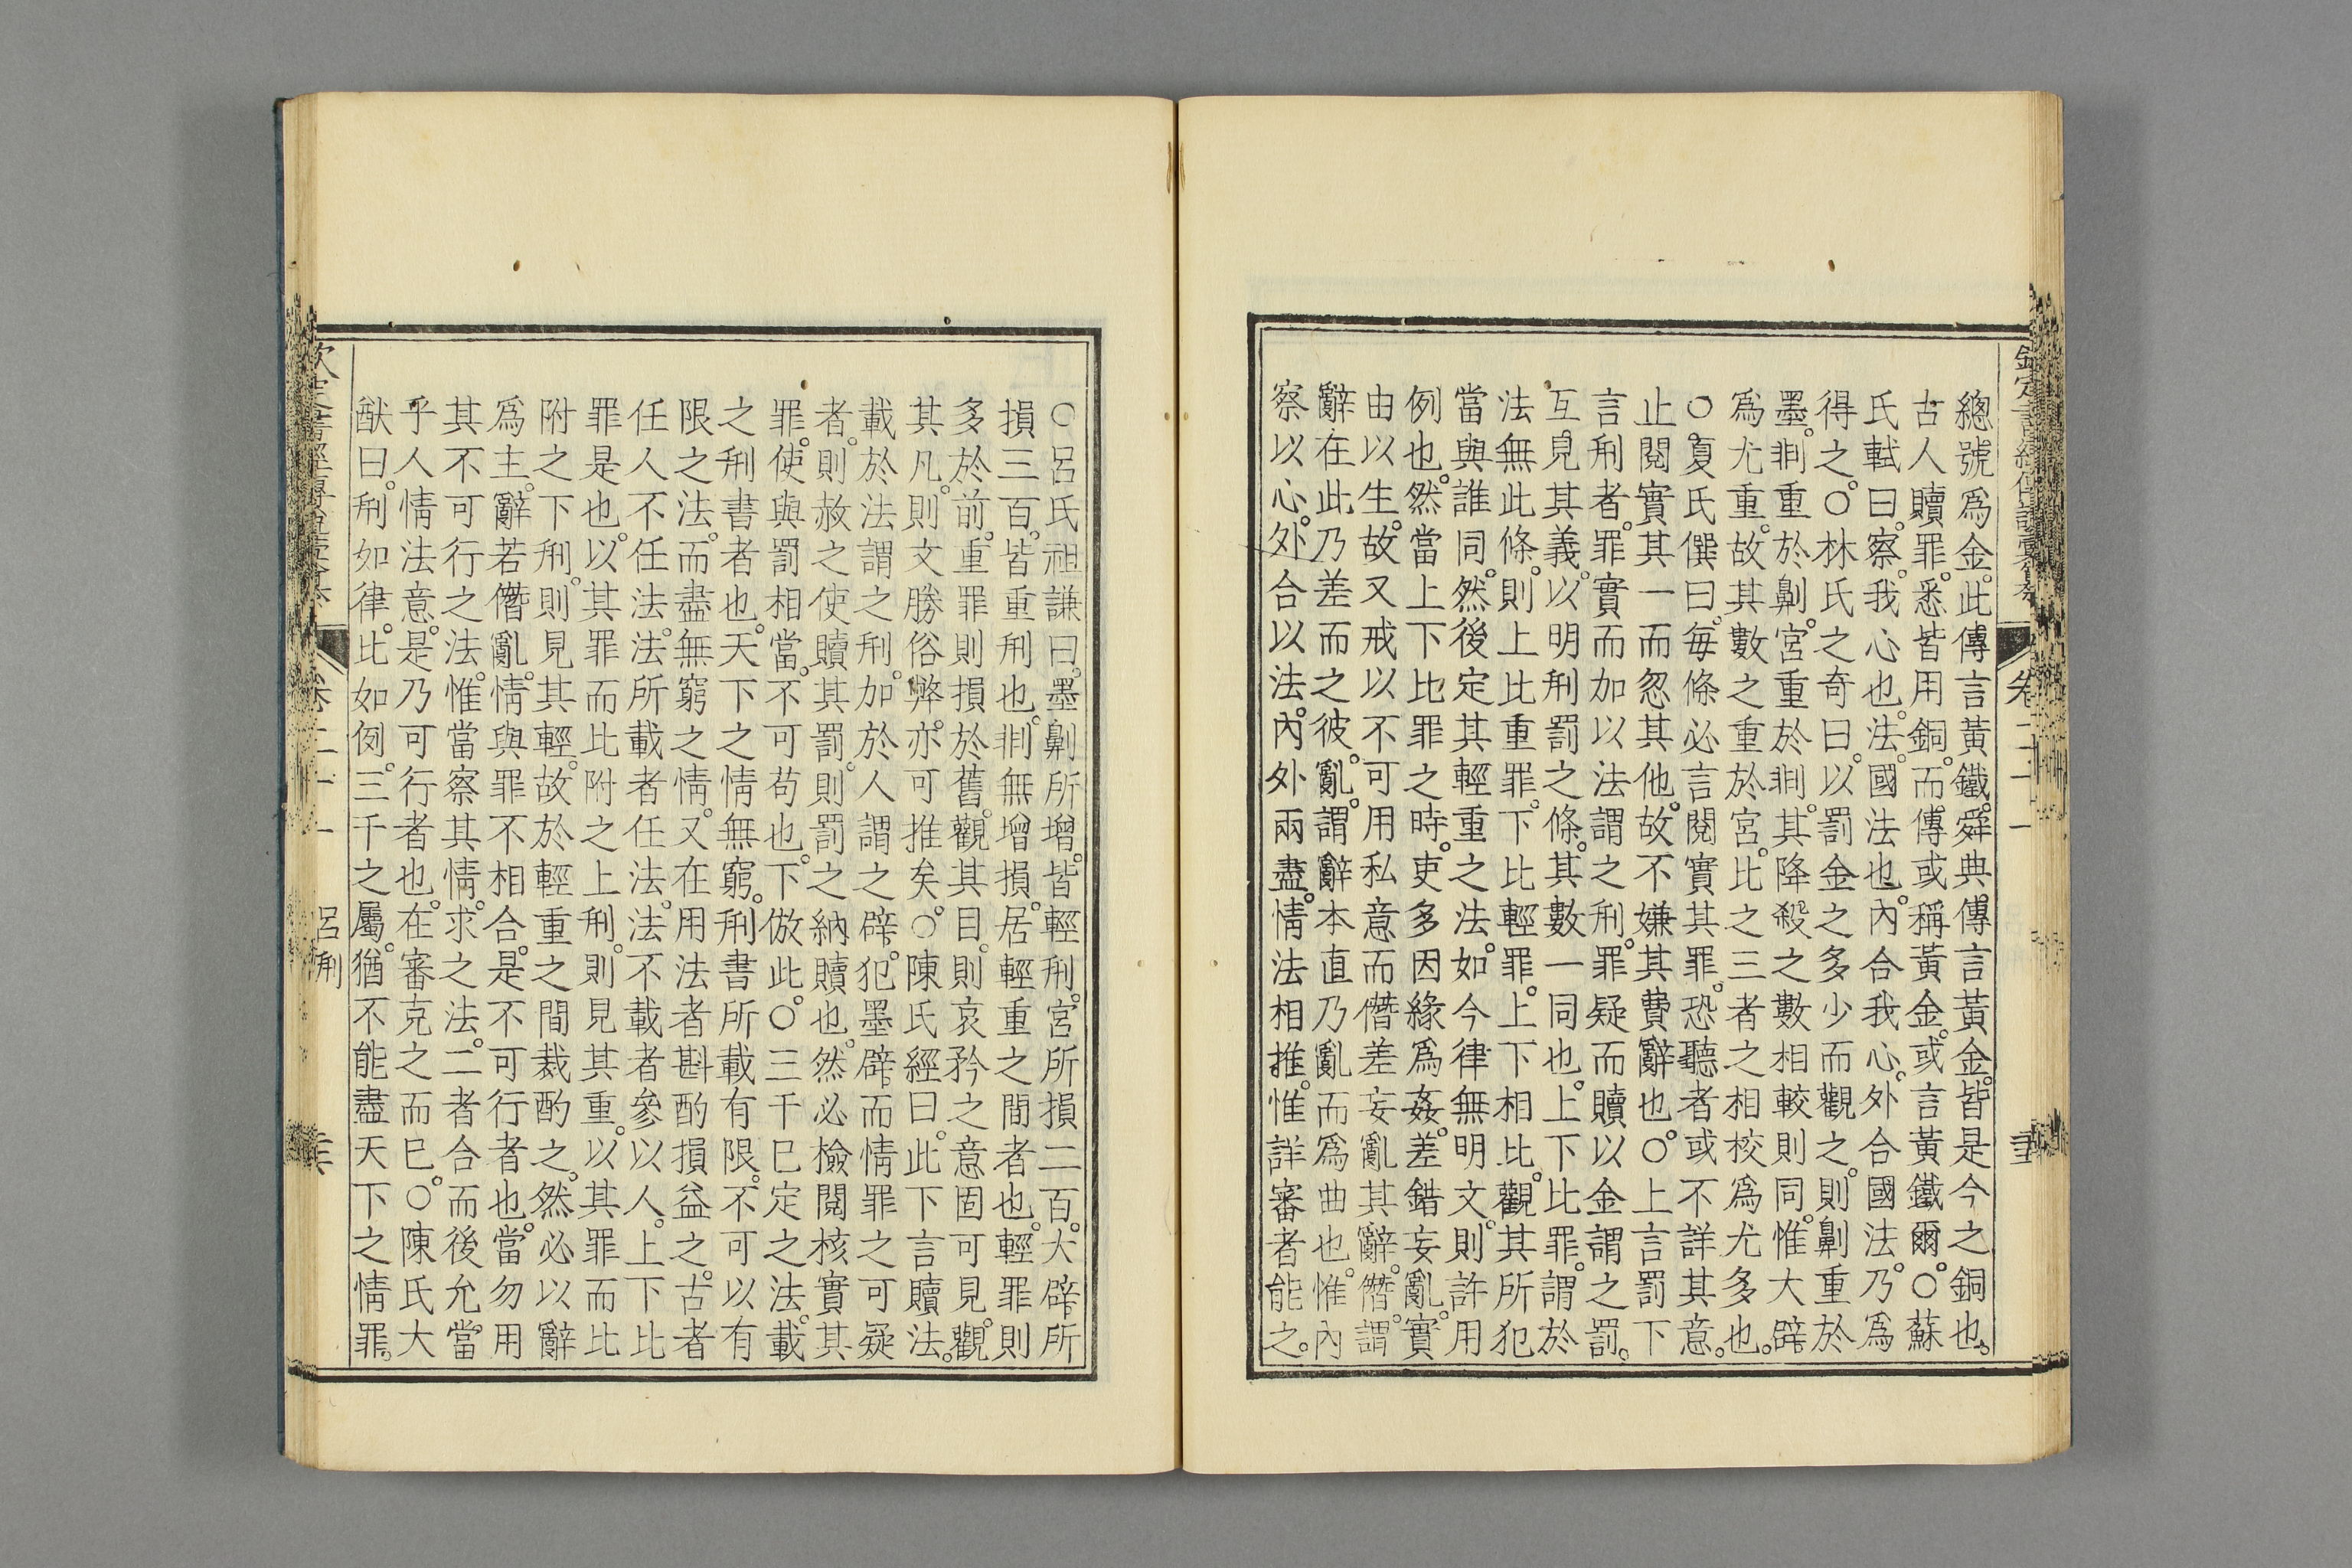 總號爲金。此傳言黃鐵。舜典。傳言黃金。皆是今之銅也。
古人贖罪。悉皆用銅。而傳或稱黃金。或言黃鐵爾。○蘇
氏軾曰。察。我心也。法。國法也。內合我心。外合國法。乃爲
得之。○林氏之奇曰。以罰金之多少而觀之。則劓重於
墨。剕重於劓。宮重於剕。其降殺之數相較則同。惟大辟
爲尤重。故其數之重於宮。比之三者之相校爲尤多也。
○夏氏僎曰。每條必言閱實其罪。恐聽者或不詳其意。
止閱實其一而忽其他。故不嫌其費辭也。○上言罰下
言刑者。罪實而加以法謂之刑。罪疑而贖以金謂之罰。
互見其義。以明刑罰之條。其數一同也。上下比罪。謂於
法無此條。則上比重罪。下比輕罪。上下相比。觀其所犯
當與誰同。然後定其輕重之法。如今律無明文。則許用
例也。然當上下比罪之時。吏多因緣爲姦。差錯妄亂。實
由以生。故又戒以不可用私意而僭差妄亂其辭。僭。謂
辭在此乃差而之彼。亂。謂辭本直乃亂而爲曲也。惟內
察以心。外合以法。內外兩盡。情法相推。惟詳審者能之。
卷二十一
○呂氏祖謙曰。墨劓所增。皆輕刑。宮所損二百。大辟所
損三百。皆重刑也。剕無增損。居輕重之間者也。輕罪則
多於前。重罪則損於舊。觀其目。則哀矜之意固可見。觀
其凡。則文勝俗弊。亦可推矣。○陳氏經曰。此下言贖法。
載於法謂之刑。加於人謂之辟。犯墨辟。而情罪之可疑
者。則赦之使贖其罰。則罰之納贖也。然必檢閱核實其
罪。使與罰相當。不可苟也。下倣此。○三千已定之法。載
之刑書者也。天下之情無窮。刑書所載有限。不可以有
限之法。而盡無窮之情。又在用法者斟酌損益之。古者
任人不任法。法所載者任法。法不載者參以人。上下比
罪是也。以其罪而比附之上刑。則見其重。以其罪而比
附之下刑。則見其輕。故於輕重之間裁酌之。然必以辭
爲主。辭若僭亂。情與罪不相合。是不可行者也。當勿用
其不可行之法。惟當察其情。求之法。二者合而後允當
乎人情法意。是乃可行者也。在審克之而已。○陳氏大
猷曰。刑如律。比如例。三千之屬。猶不能盡天下之情罪。
卷二十一 呂刑